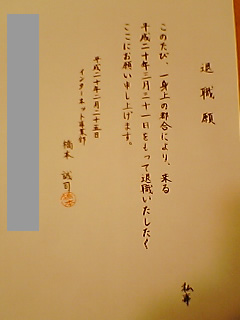 退職願
私事
このたび、一身上の都合により、来る
平成二十年三月三十一日をもって退職いたしたく
ここにお願い申し上げます。
平成二十年二月二十五日
インターネット事業部
橋本 誠司